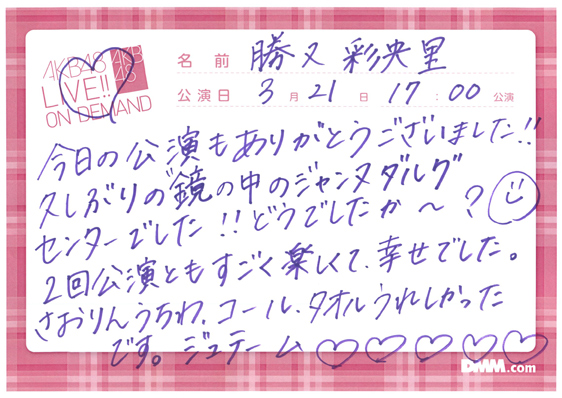 AKB48
LIVE!!
ON DEMAND
AKB
48
名前 勝又 彩央里
公演日 3月21日 17:00公演
今日の公演もありがとうございました!!
久しぶりの"鏡の中のジャンヌダルク"
センターでした!!どうでしたか〜?
2回公演ともすごく楽しくて、幸せでした。
さおりんうちわ、コール、タオルうれしかった
です。ジュテーム♡♡♡♡♡
DMM.com